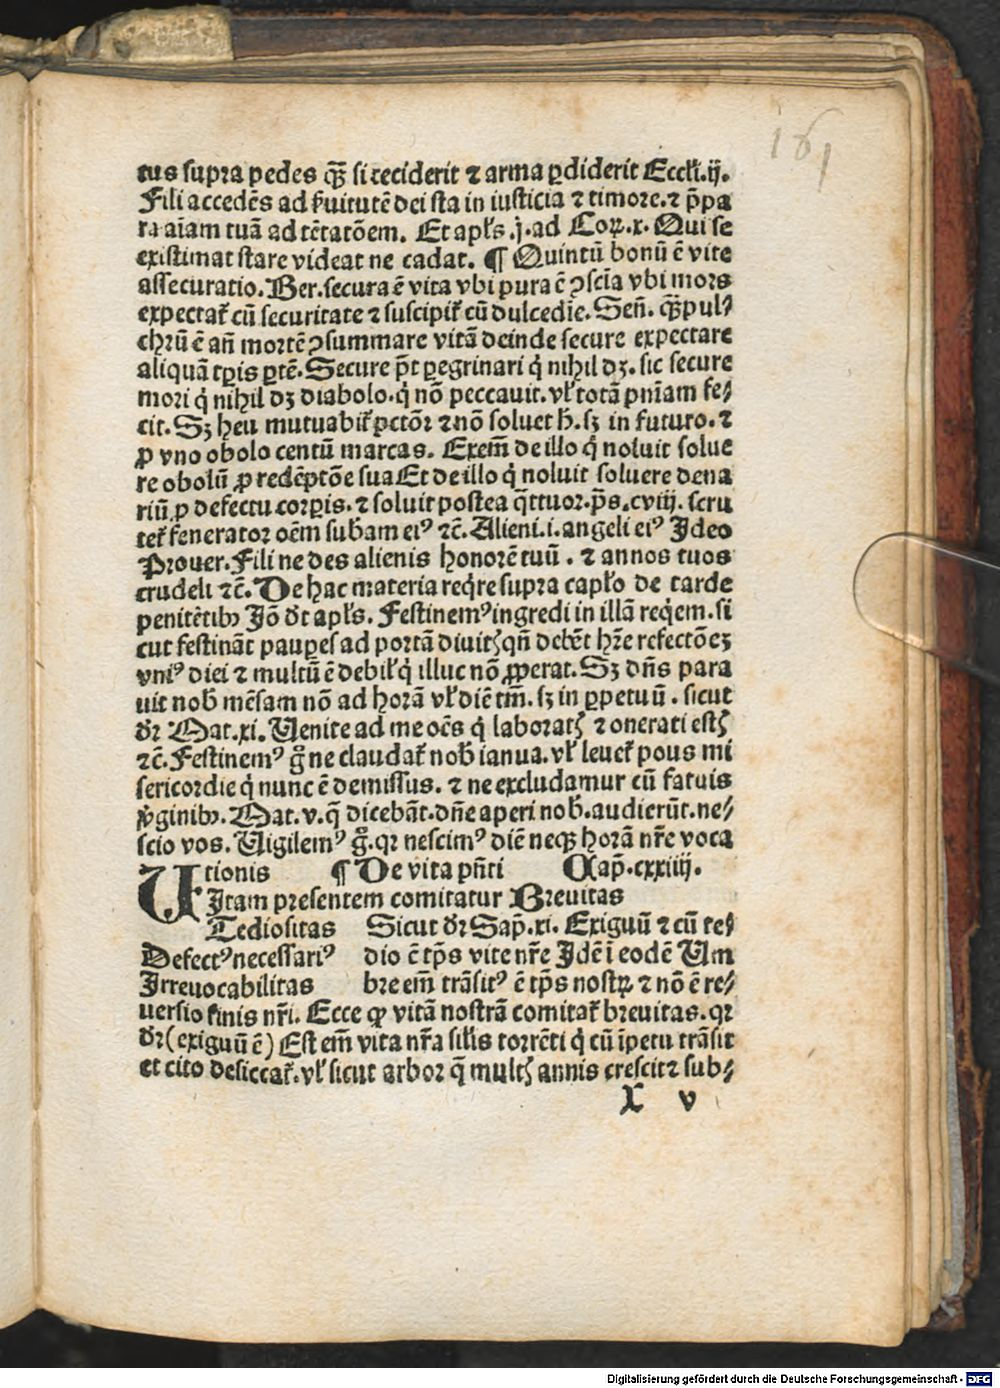 161
tus supra pedes qꝫ̄ si ceciderit ⁊ arma ꝑdiderit Eccl'i.ij.
Fili accedēs ad ẜuitutē dei sta in iusticia ⁊ timore.⁊ p̄pa
ra aīam tuā ad tētatōem. Et apl's .j.ad Coꝝ.x. Qui se
existimat stare videat ne cadat. ¶ Quintū bonū ē vite
assecuratio. Ber.secura ē vita vbi pura ē ꝯsciā vbi mors
expectat̃ cū securitate ⁊ suscipit̃ cū dulcedīe. Seň. qꝫ̄ pul⸗
chrū ē añ mortē ꝯsummare vitā deinde secure expectare
aliquā tꝑis ꝑtē. Secure p̄t ꝑegrinari q̇ nihil dꝫ. sic secure
mori q̇ nihil dꝫ diabolo.q̇ nō peccauit.vl' totā pnīam fe⸗
cit. Sꝫ heu mutuabit̃ pctōr ⁊ nō soluet h̄. sꝫ in futuro. ⁊
ꝓ vno obolo centū marcas. Exem̄ de illo q̇ noluit solue
re obolū ꝓ redēptōe sua Et de illo q̇ noluit soluere dena
riū ꝓ defectu corꝑis. ⁊ soluit postea q̄ttuor. p̄s.cviij. scru
tet̃ fenerator oēm subam eiꝰ ⁊c̄. Alieni.i.angeli eiꝰ Ideo
Prouer. Fili ne des alienis honorē tuū . ⁊ annos tuos
crudeli ⁊c̄. De hac materia req̇re supra capl'o de tarde
penitētibꝫ Jō dr̄ apl's. Festinemꝰ ingredi in illā req̇em. si
cut festināt pauꝑes ad portā diuitꝭ qñ debēt hr̄e refectōeꝫ
vniꝰ diei ⁊ multū ē debil' q̇ illuc nō ꝓꝑerat. Sꝫ dn̄s para
uit nob̄ mēsam nō ad horā vl' diē tm̄. sꝫ in ꝑpetuū . sicut
dr̄ Mat.xi. Uenite ad me oēs q̇ laboratꝭ ⁊ onerati estꝭ
⁊c̄. Festinemꝰ g̊ ne claudat̃ nob̄ ianua. vl' leuet̃ pons mi
sericordie q̇ nunc ē demissus. ⁊ ne excludamur cū fatuis
v̇ginibꝫ. Mat.v. q̄ dicebāt. dn̄e aperi nob̄. audierūt. ne⸗
scio vos. Uigilemꝰ g̊. qꝛ nescimꝰ diē neqꝫ horā nr̄e voca
tionis ¶ De vita pn̄ti Cap̄.cxxiiij.
UItam presentem comitatur Breuitas
Tediositas Sicut dr̄ Sap̄.xi. Exiguū ⁊ cū te⸗
Defectꝰ necessariꝰ dio ē tp̄s vite nr̄e Idē ī eodē Um
Irreuocabilitas bre em̄ trāsitꝰ ē tp̄s nostꝝ ⁊ nō ē re⸗
uersio finis nr̄i. Ecce ꝙ vitā nostrā comitat̃ breuitas. qꝛ
dr̄ (exiguū ē) Est em̄ vita nr̄a sil'is torrēti q̇ cū īpetu trāsit
et cito desiccat̃. vl' sicut arbor q̄ multꝭ annis crescit ⁊ sub⸗
X v
Digitalisierung gefördert durch die Deutsche Forschungsgemeinschaft - DFG